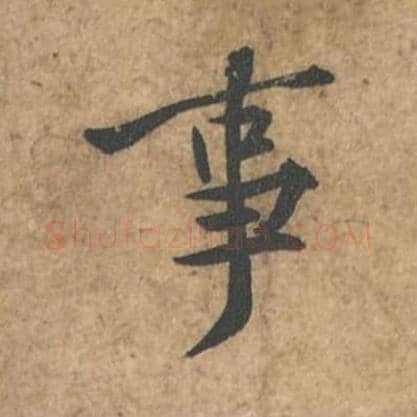 事
Shufazidian.COM